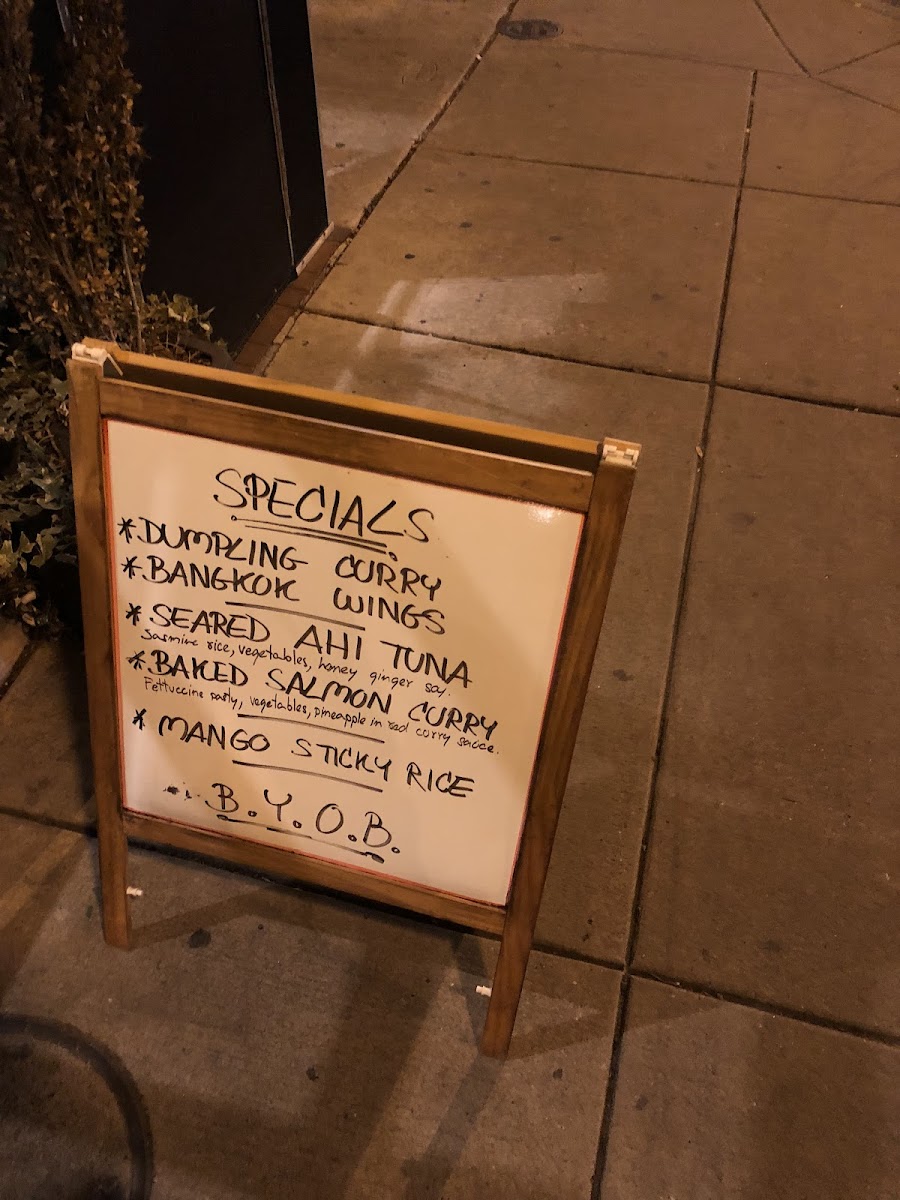 SPECIALS
* DUMPLING CURRY
* BANGKOK WINGS
* SEARED AHI TUNA
Jasmine rice, vegetables, honey ginger soy.
* BAKED SALMON CURRY
Fettuccine pasty, vegetables, pineapple in red curry sauce.
* MANGO STICKY RICE
B.Y.O.B.